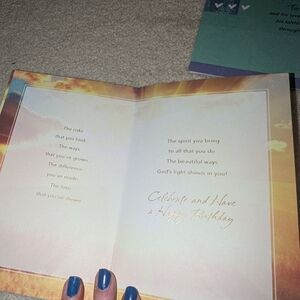 The risks
that you took
The ways
that you've grown
The difference
you've made
The love
that you've shown
The spirit you bring
to all that you do
The beautiful ways
God's light shines in you!
Celebrate and Have
a Happy Birthday
through